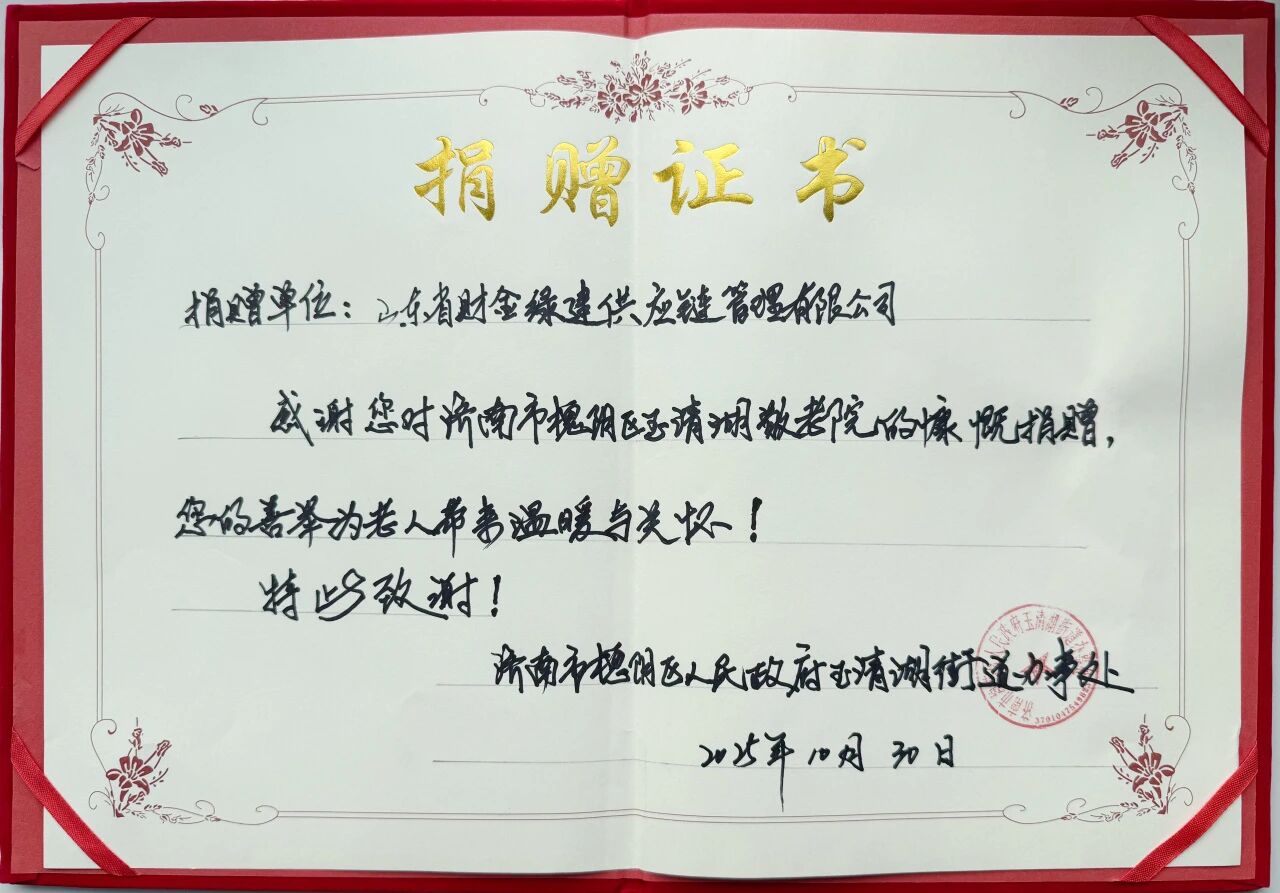 捐赠证书
捐赠单位：山东省财金绿建供应链管理有限公司
感谢您对济南市槐阴区玉清湖敬老院的慷慨捐赠，
您的善举为老人带来温暖与关怀！
特此致谢！
济南市槐阴区人民政府玉清湖街道办事处
2025年10月30日